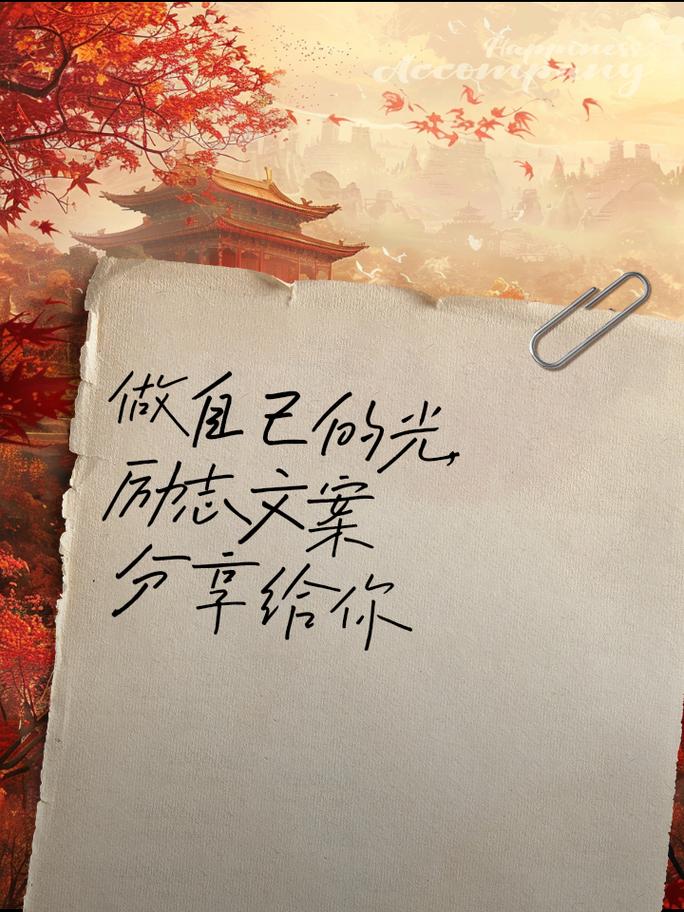 Happiness
Accompany
做自己的光，
励志文案
分享给你